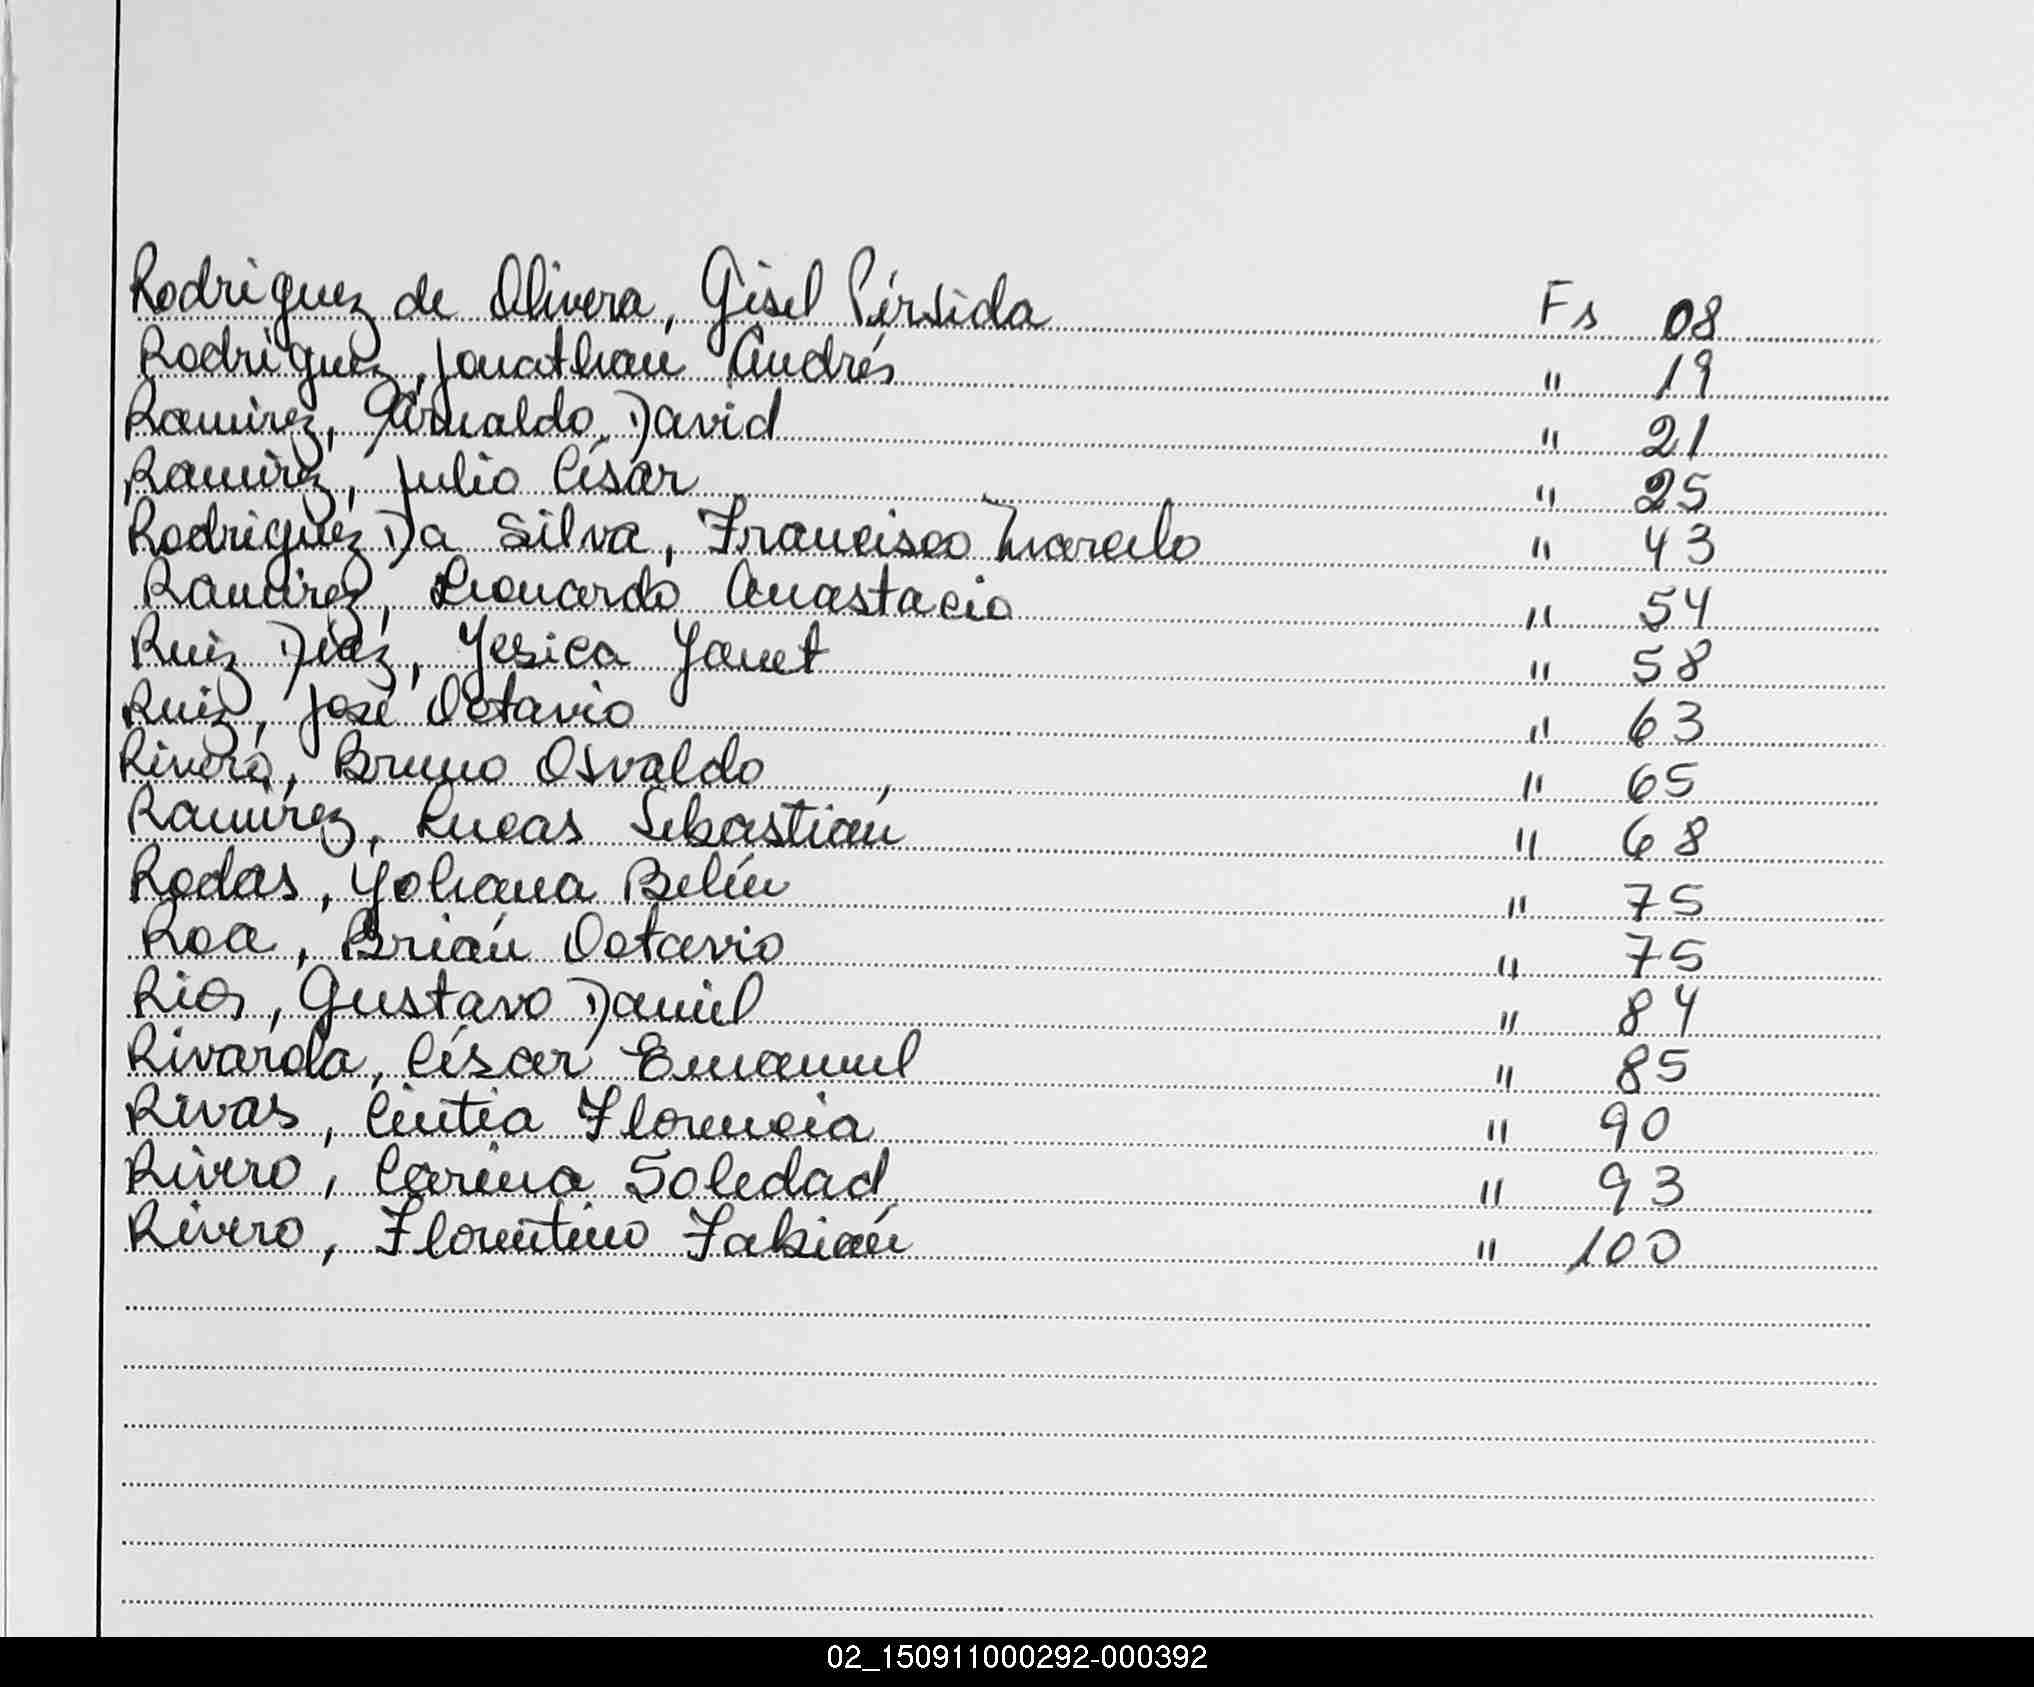 Rodriguez de Olivera, Gisel Pérsida Fs 08
Rodriguez, Jonathan Andrés " 19
Ramirez, Arnaldo David " 21
Ramirez, Julio César " 25
Rodriguez Da Silva, Francisco Marcelo " 43
Ramirez, Leonardo Anastacio " 54
Ruiz Diaz, Yesica Yanet " 58
Ruiz, José Octavio " 63
Rivero, Bruno Osvaldo " 65
Ramirez, Lucas Sebastián " 68
Rodas, Yohana Belén " 75
Roa, Brián Octavio " 75
Rios, Gustavo Daniel " 84
Rivarola, César Emanuel " 85
Rivas, Cintia Florencia " 90
Rivero, Carina Soledad " 93
Rivero, Florentino Fabián " 100
02_150911000292-000392